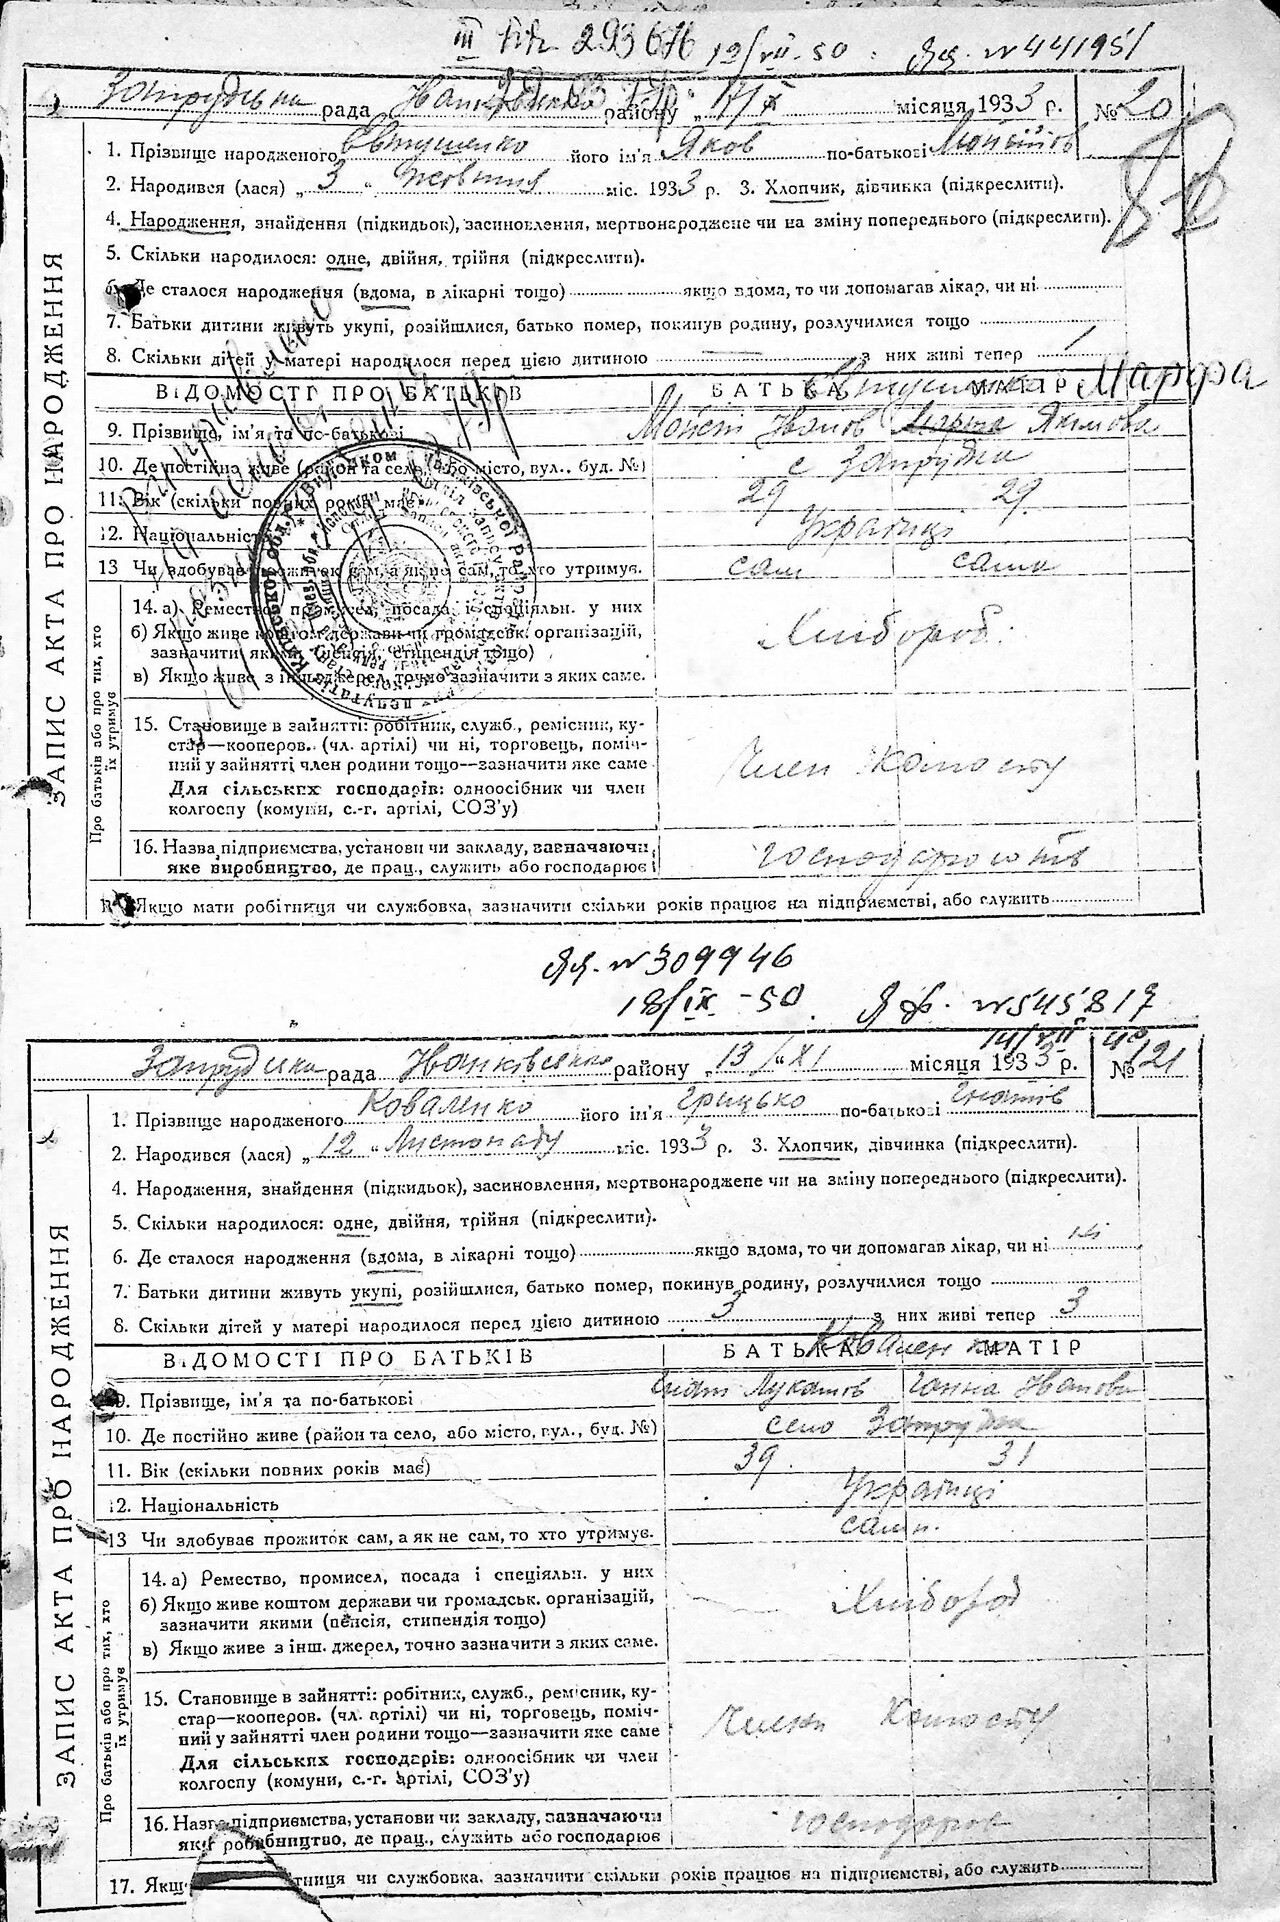 III 293676 12/VII-50 № 441951
ЗАПИС АКТА ПРО НАРОДЖЕННЯ
рада району місяця 1933 р. № 20
1. Прізвище народженого Євтушенко його ім'я Яков по-батькові
2. Народився (лася) „ 3 " Жовтня міс. 1933 р. 3. Хлопчик, дівчинка (підкреслити).
4. Народження, знайдення (підкидьок), засиновлення, мертвонароджене чи на зміну попереднього (підкреслити).
5. Скільки народилося: одне, двійня, трійня (підкреслити).
6. Де сталося народження (вдома, в лікарні тощо) якщо вдома, то чи допомагав лікар, чи ні
7. Батьки дитини живуть укупі, розійшлися, батько помер, покинув родину, розлучилися тощо
8. Скільки дітей у матері народилося перед цією дитиною — з них живі тепер 1
ВІДОМОСТІ ПРО БАТЬКІВ БАТЬКА МАТІР
Євтушенко Марфа
9. Прізвище, ім'я та по-батькові Мойсей Іванов Якимова
10. Де постійна живе (район та село, або місто, вул., буд. №) с Запрудка
11. Вік (скільки повних років має) 29 29
12. Національність Українці
13 Чи здобуває прожиток сам, а як не сам, то хто утримує. сам сама
Про батьків або про тих, хто їх утримує
14. а) Ремество, промисел, посада і спеціяльн. у них
б) Якщо живе коштом держави чи громадськ. організацій,
зазначити якими (пенсія, стипендія тощо)
в) Якщо живе з інш. джерел, точно зазначити з яких саме.
Хлібороб.
15. Становище в зайнятті: робітник, служб., ремісник, ку-
стар—кооперов. (чл. артілі) чи ні, торговець, поміч-
ний у зайнятті член родини тощо—зазначити яке саме
Для сільських господарів: одноосібник чи член
колгоспу (комуни, с.-г. артілі, СОЗ'у)
Член
16. Назва підприємства, установи чи закладу, зазначаючи
яке виробництво, де прац., служить або господарює
17. Якщо мати робітниця чи службовка, зазначити скільки років працює на підприємстві, або служить
№ 309946
18/IX-50 № 545817
14/VII
ЗАПИС АКТА ПРО НАРОДЖЕННЯ
рада району „ 13 / " XI місяця 1933 р. № 121
1. Прізвище народженого Коваленко його ім'я Грицько по-батькові Гнатів
2. Народився (лася) „ 12 " Листопаду міс. 1933 р. 3. Хлопчик, дівчинка (підкреслити).
4. Народження, знайдення (підкидьок), засиновлення, мертвонароджене чи на зміну попереднього (підкреслити).
5. Скільки народилося: одне, двійня, трійня (підкреслити).
6. Де сталося народження (вдома, в лікарні тощо) якщо вдома, то чи допомагав лікар, чи ні ні
7. Батьки дитини живуть укупі, розійшлися, батько помер, покинув родину, розлучилися тощо
8. Скільки дітей у матері народилося перед цією дитиною 3 з них живі тепер 3
ВІДОМОСТІ ПРО БАТЬКІВ БАТЬКА МАТІР
Коваленко
9. Прізвище, ім'я та по-батькові Гнат Лукашов Ганна Іванова
10. Де постійно живе (район та село, або місто, вул., буд. №) село Запрудка
11. Вік (скільки повних років має) 39 31
12. Національність Українці
13 Чи здобуває прожиток сам, а як не сам, то хто утримує. самі.
Про батьків або про тих, хто їх утримує
14. а) Ремество, промисел, посада і спеціяльн. у них
б) Якщо живе коштом держави чи громадськ. організацій,
зазначити якими (пенсія, стипендія тощо)
в) Якщо живе з інш. джерел, точно зазначити з яких саме.
Хлібороб
15. Становище в зайнятті: робітник, служб., ремісник, ку-
стар—кооперов. (чл. артілі) чи ні, торговець, поміч-
ний у зайнятті член родини тощо—зазначити яке саме
Для сільських господарів: одноосібник чи член
колгоспу (комуни, с.-г. артілі, СОЗ'у)
Члени
16. Назва підприємства, установи чи закладу, зазначаючи
яке виробництво, де прац., служить або господарює
17. Якщо тниця чи службовка, зазначити скільки років працює на підприємстві, або служить